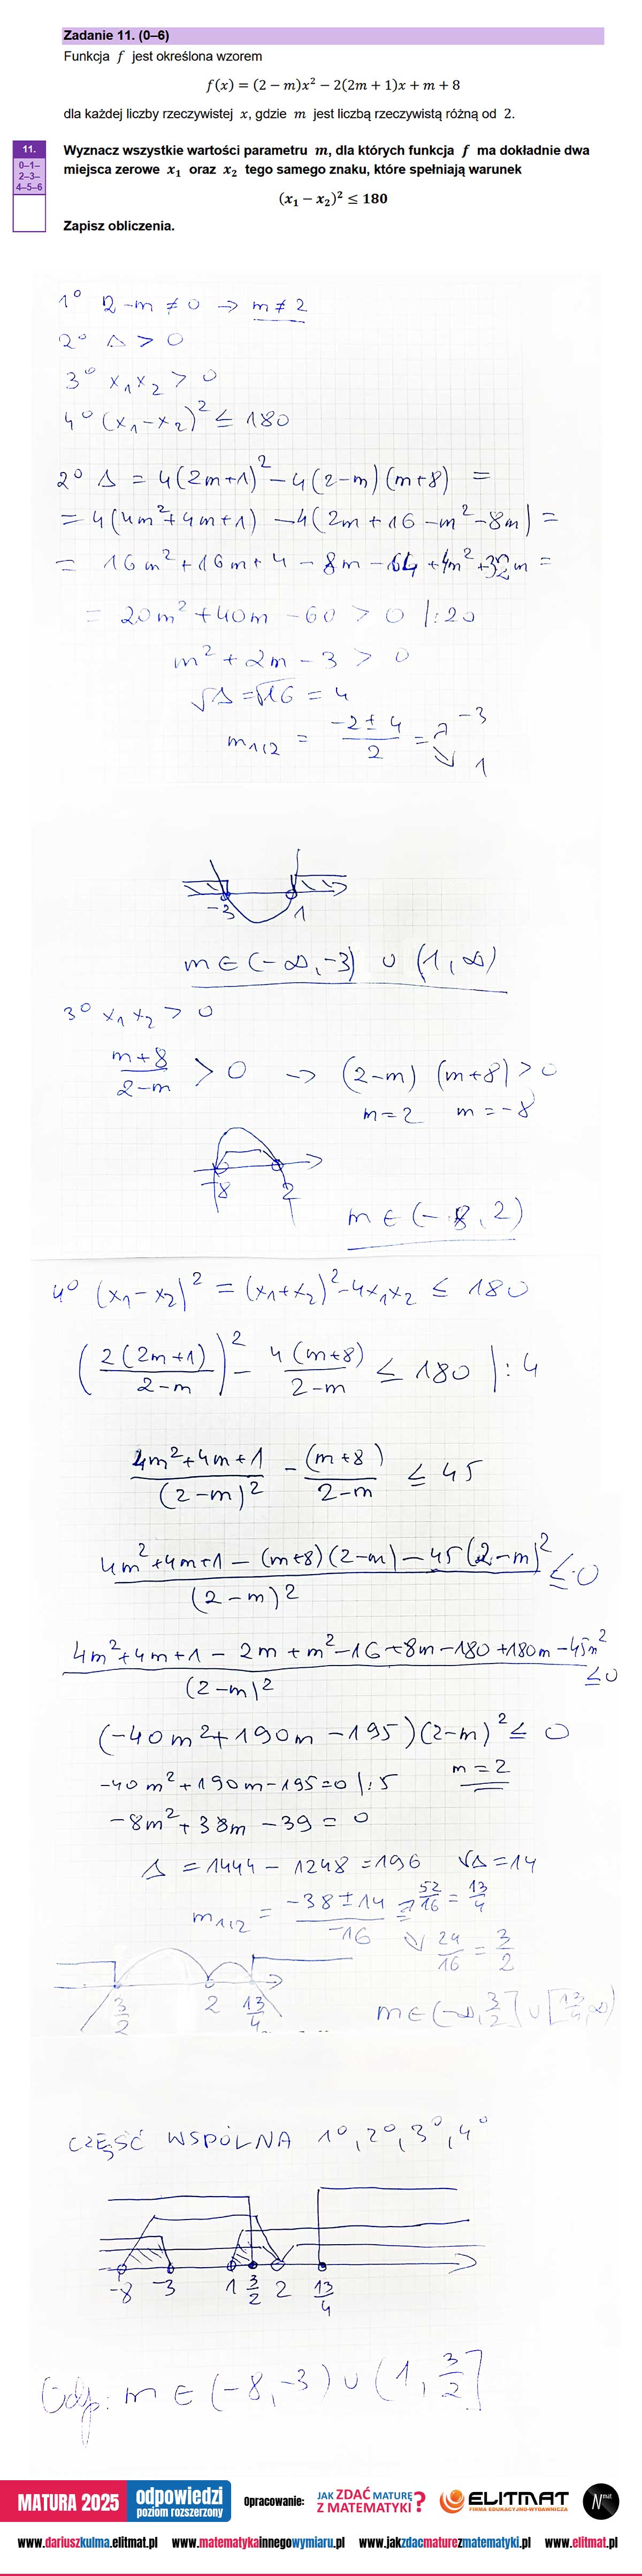 Zadanie 11. (0–6)
Funkcja f jest określona wzorem
f(x) = (2 − m)x² − 2(2m + 1)x + m + 8
dla każdej liczby rzeczywistej x, gdzie m jest liczbą rzeczywistą różną od 2.
11.
0–1–
2–3–
4–5–6
Wyznacz wszystkie wartości parametru m, dla których funkcja f ma dokładnie dwa
miejsca zerowe x₁ oraz x₂ tego samego znaku, które spełniają warunek
(x₁ − x₂)² ≤ 180
Zapisz obliczenia.
1° 2-m ≠ 0 → m ≠ 2
2° Δ > 0
3° x₁x₂ > 0
4° (x₁-x₂)² ≤ 180
2° Δ = 4(2m+1)² - 4(2-m)(m+8) =
= 4(4m²+4m+1) - 4(2m+16-m²-8m) =
= 16m²+16m+4 - 8m - 64 + 4m² + 32m =
= 20m² + 40m - 60 > 0 |:20
m² + 2m - 3 > 0
√Δ = √16 = 4
m₁,₂ = (-2 ± 4)/2 = ↗ -3
↘ 1
-3 1
m ∈ (-∞,-3) ∪ (1,∞)
3° x₁x₂ > 0
(m+8)/(2-m) > 0 → (2-m)(m+8) > 0
m=2 m=-8
-8 2
m ∈ (-8,2)
4° (x₁-x₂)² = (x₁+x₂)² - 4x₁x₂ ≤ 180
(2(2m+1)/(2-m))² - 4(m+8)/(2-m) ≤ 180 |:4
(4m²+4m+1)/(2-m)² - (m+8)/(2-m) ≤ 45
(4m²+4m+1 - (m+8)(2-m) - 45(2-m)²)/(2-m)² ≤ 0
(4m²+4m+1 - 2m + m² - 16 + 8m - 180 + 180m - 45m²)/(2-m)² ≤ 0
(-40m² + 190m - 195)(2-m)² ≤ 0
-40m² + 190m - 195 = 0 |:5 m=2
-8m² + 38m - 39 = 0
Δ = 1444 - 1248 = 196 √Δ = 14
m₁,₂ = (-38 ± 14)/-16 = ↗ 52/16 = 13/4
↘ 24/16 = 3/2
3/2 2 13/4 m ∈ (-∞, 3/2] ∪ [13/4, ∞)
CZĘŚĆ WSPÓLNA 1°, 2°, 3°, 4°
-8 -3 1 3/2 2 13/4
Odp: m ∈ (-8,-3) ∪ (1, 3/2]
MATURA 2025 odpowiedzi poziom rozszerzony
Opracowanie:
JAK ZDAĆ MATURĘ Z MATEMATYKI?
ELITMAT
FIRMA EDUKACYJNO-WYDAWNICZA
N mat
www.dariuszkulma.elitmat.pl www.matematykainnegowymiaru.pl www.jakzdacmaturezmatematyki.pl www.elitmat.pl